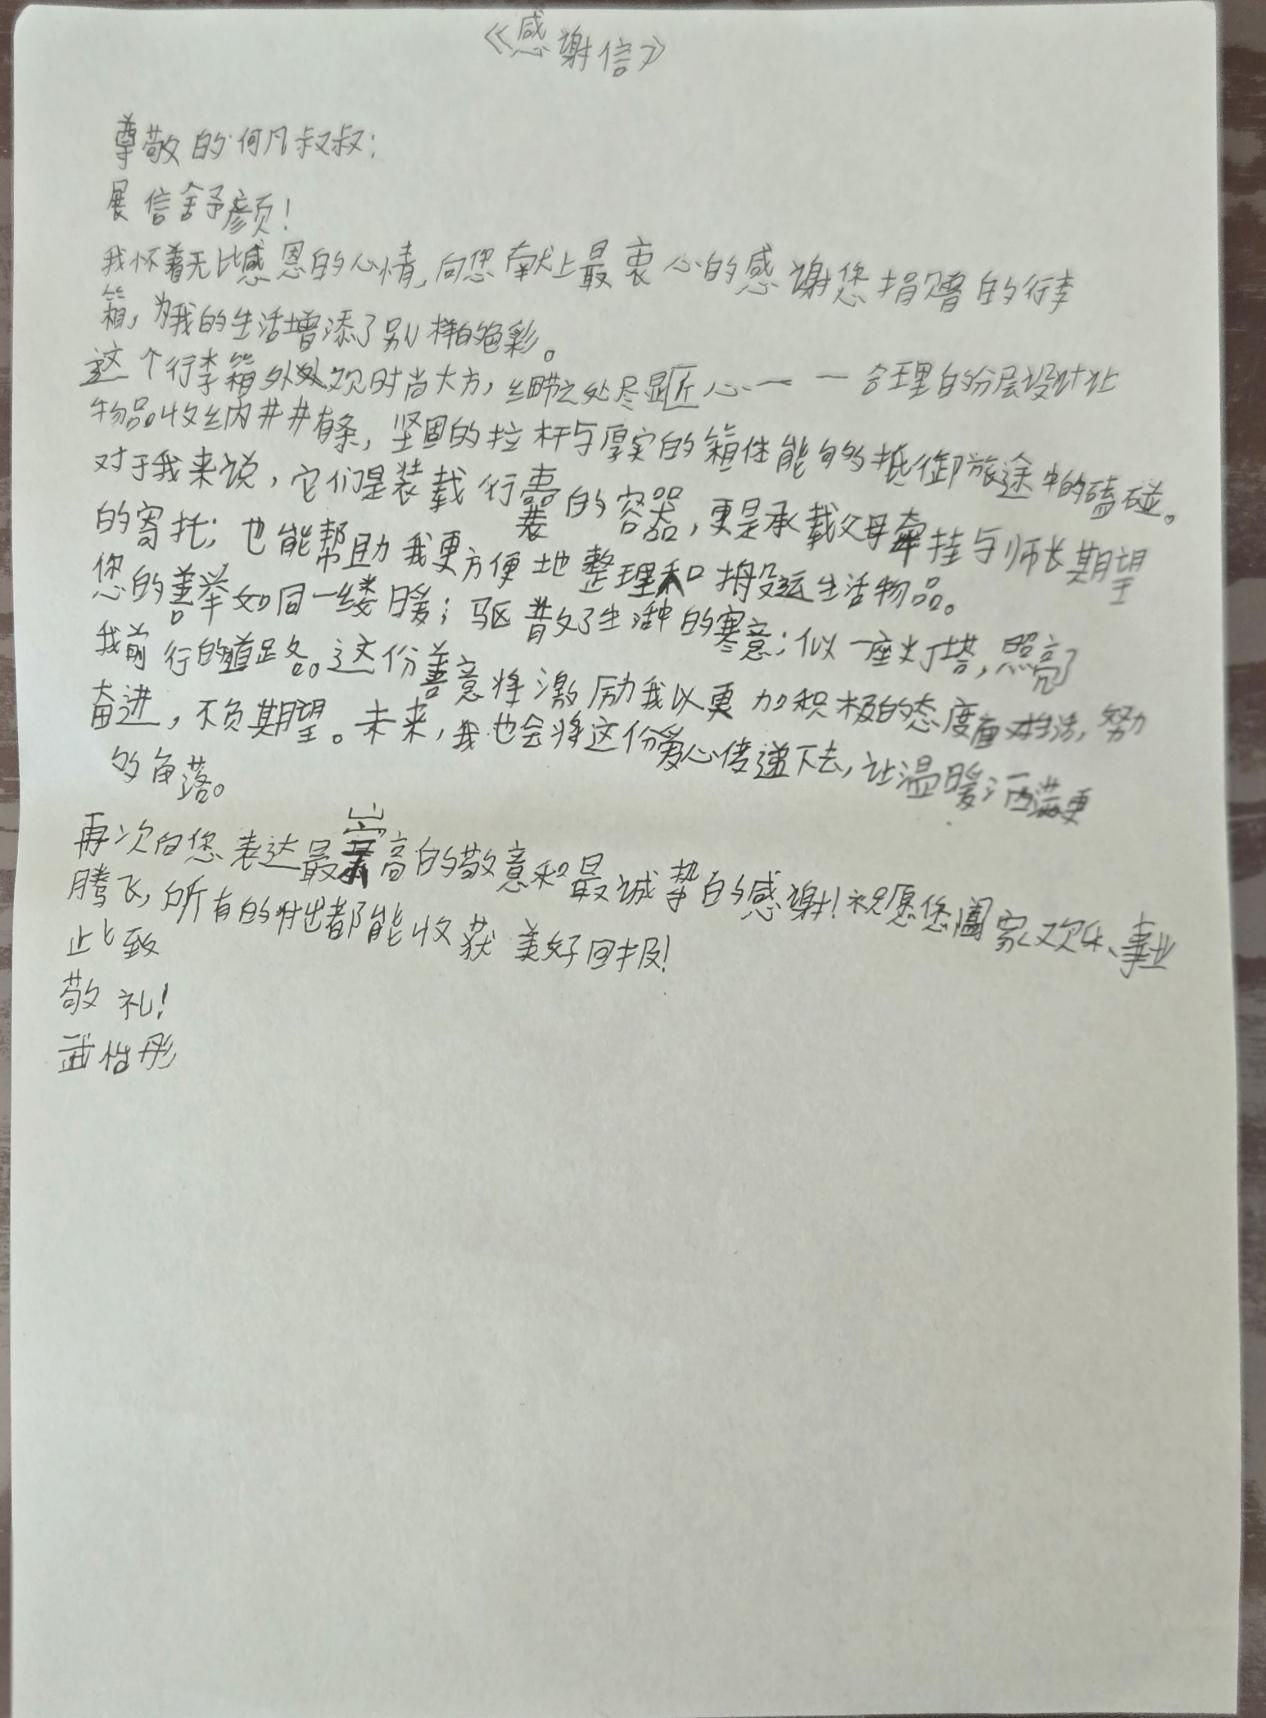 《感谢信》
尊敬的何凡叔叔：
展信舒颜！
我怀着无比感恩的心情，向您献上最衷心的感谢您捐赠的行李
箱，为我的生活增添了别样的色彩。
这个行李箱外观时尚大方，细节之处尽显匠心——合理的分层设计让
物品收纳井井有条，坚固的拉杆与厚实的箱体能够抵御旅途中的磕碰。
对于我来说，它们是装载行囊的容器，更是承载父母牵挂与师长期望
的寄托；也能帮助我更方便地整理和搬运生活物品。
您的善举如同一缕暖；驱散了生活中的寒意；似一座灯塔，照亮了
我前行的道路。这份善意将激励我以更加积极的态度面对生活，努力
奋进，不负期望。未来，我也会将这份爱心传递下去，让温暖洒满更
多角落。
再次向您表达最崇高的敬意和最诚挚的感谢！祝愿您阖家欢乐、事业
腾飞，所有的付出都能收获美好回报！
此致
敬礼！
武怡彤